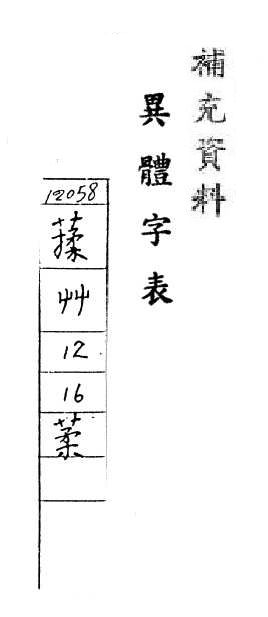 補充資料
異體字表
12058
艸
12
16
葇